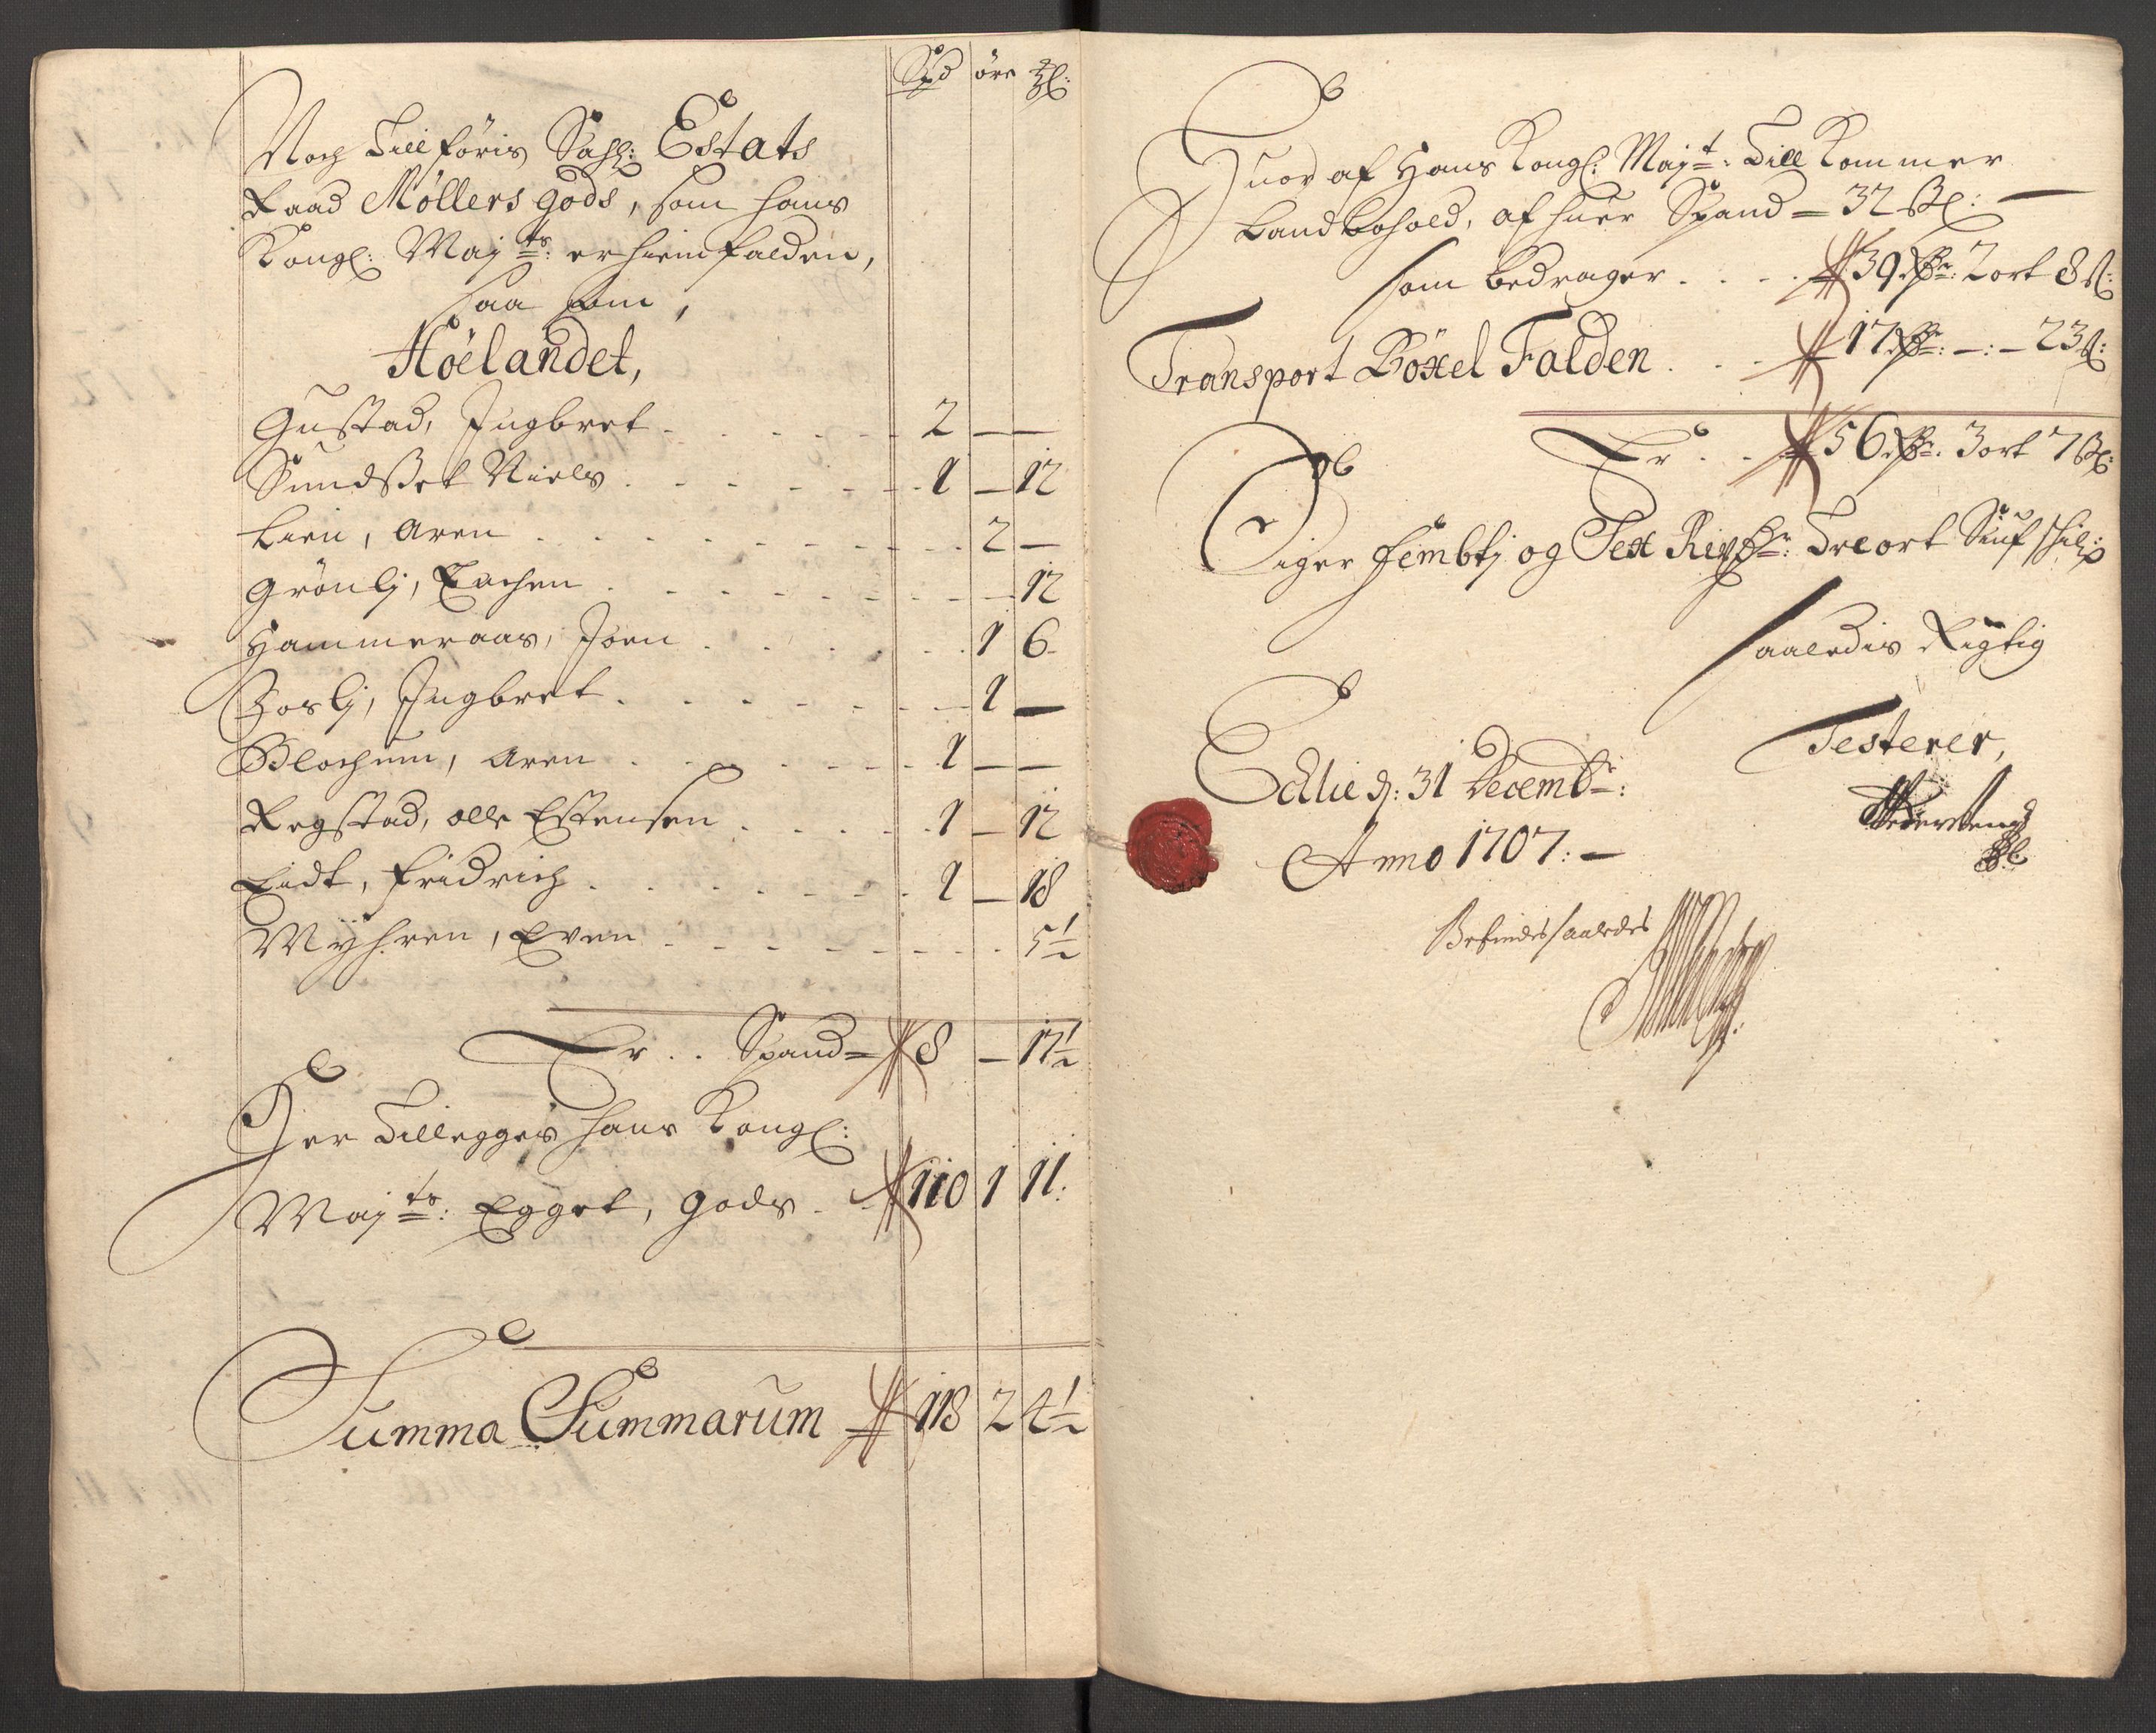 Spd öre ℔:
Noch Till föris Sahl: Estats
Raad Möllers gods, som hans
Kongl: Maj:ts: er hiemfalden,
saa som,
Höelandet,
Gustad, Ingbret . . . . . . 2 — —
Sundset Niels . . . . . . 1 — 12
Lien, Aren . . . . . . 2 —
Grönlj, Zachen . . . . . . 12
Hammeraas, Joen . . . . . . 1 6
Joslj, Ingbret . . . . . . 1 —
Blochum, Aren . . . . . . 1 — —
Regstad, olle Estensen . . . . . 1 — 12
Eidt, Fridrich . . . . . . 1 — 18
Myhren, Even . . . . . . 5½
Er . . Spand = 8 — 17½
Her Tillegges hans Kongl:
Maj:ts: Egget, gods . . 110 1 11:
Summa Summarum 118 2 4½
Huor af Hans Kongl: Majt: Till Kommer
Landbohold, af huer Spand = 32 ß: —
som bedrager . . . 39 Rdr: 2 ort 8 ß:
Transport Böxel Falden . . . 17 Rdr: — : — 23 ß:
Er . . 56 Rdr. 3 ort 7 ß:
Siger Fembtj og Sex Rixdr: Tre ort Siuf skil:
saaledis Rigtig
Testerer,
Edlie d: 31 Decembr:
Anno 1707: —
Befindes saaledes